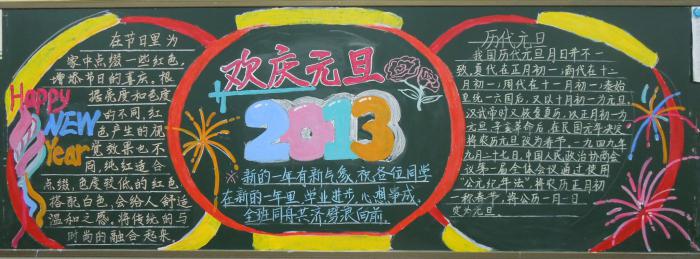 在节日里为
家中点缀一些红色,
增添节日的喜庆,根
据亮度和色度
的不同,红
色产生的视
觉效果也不
同,纯红适合
点缀,色度较低的红色
搭配白色,会给人舒适
温和之感,将传统的与
时尚的融合起来.
Happy
NEW
Year
欢庆元旦
2013
※新的一年有新气象,祝各位同学
在新的一年里,学业进步,心想学成,
全班同舟共济,梦浪向前.
历代元旦
我国历代元旦月日并不一
致,夏代在正月初一,商代在十二
月初一,周代在十一月初一,秦始
皇统一六国后,又以十月初一为元旦,
汉武帝时又恢复夏历,以正月初一为
元旦,辛亥革命后,在民国元年决议
将农历元旦改为春节,一九四九
年九月二十七日,中国人民政治协商会
议第一届全体会议通过使用
“公元纪年法”,将农历正月初
一称春节,将公历一月一日
定为元旦.